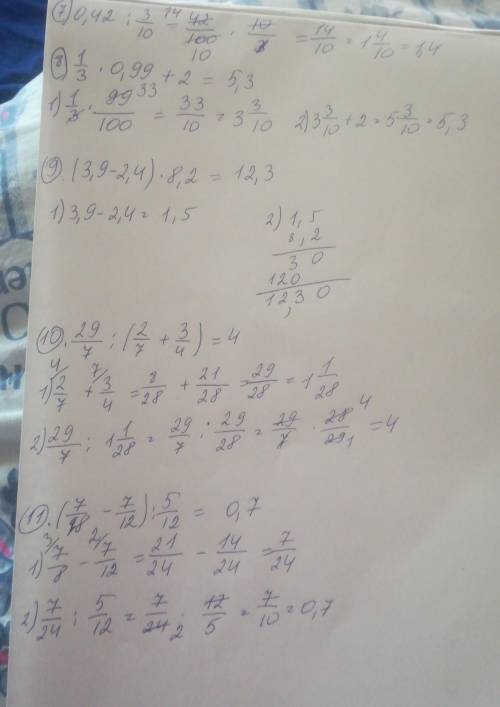 ⑦ 0,42 : 3/10 = 14 42/100 10 · 10/3 = 14/10 = 1 4/10 = 1,4
⑧ 1/3 · 0,99 + 2 = 5,3
1) 1/3 · 99 33/100 = 33/10 = 3 3/10 2) 3 3/10 + 2 = 5 3/10 = 5,3
⑨. (3,9 - 2,4) · 8,2 = 12,3
1) 3,9 - 2,4 = 1,5 2) 1,5
8,2
3 0
120
12,3 0
⑩. 29/7 : (2/7 + 3/4) = 4
1) 4/ 2/7 + 7/ 3/4 = 8/28 + 21/28 = 29/28 = 1 1/28
2) 29/7 : 1 1/28 = 29/7 : 29/28 = 29/7 · 28 4/29 1 = 4
⑪. (7/18 - 7/12) : 5/12 = 0,7
1) 3/ 7/8 - 2/ 7/12 = 21/24 - 14/24 = 7/24
2) 7/24 : 5/12 = 7/24 2 · 12/5 = 7/10 = 0,7